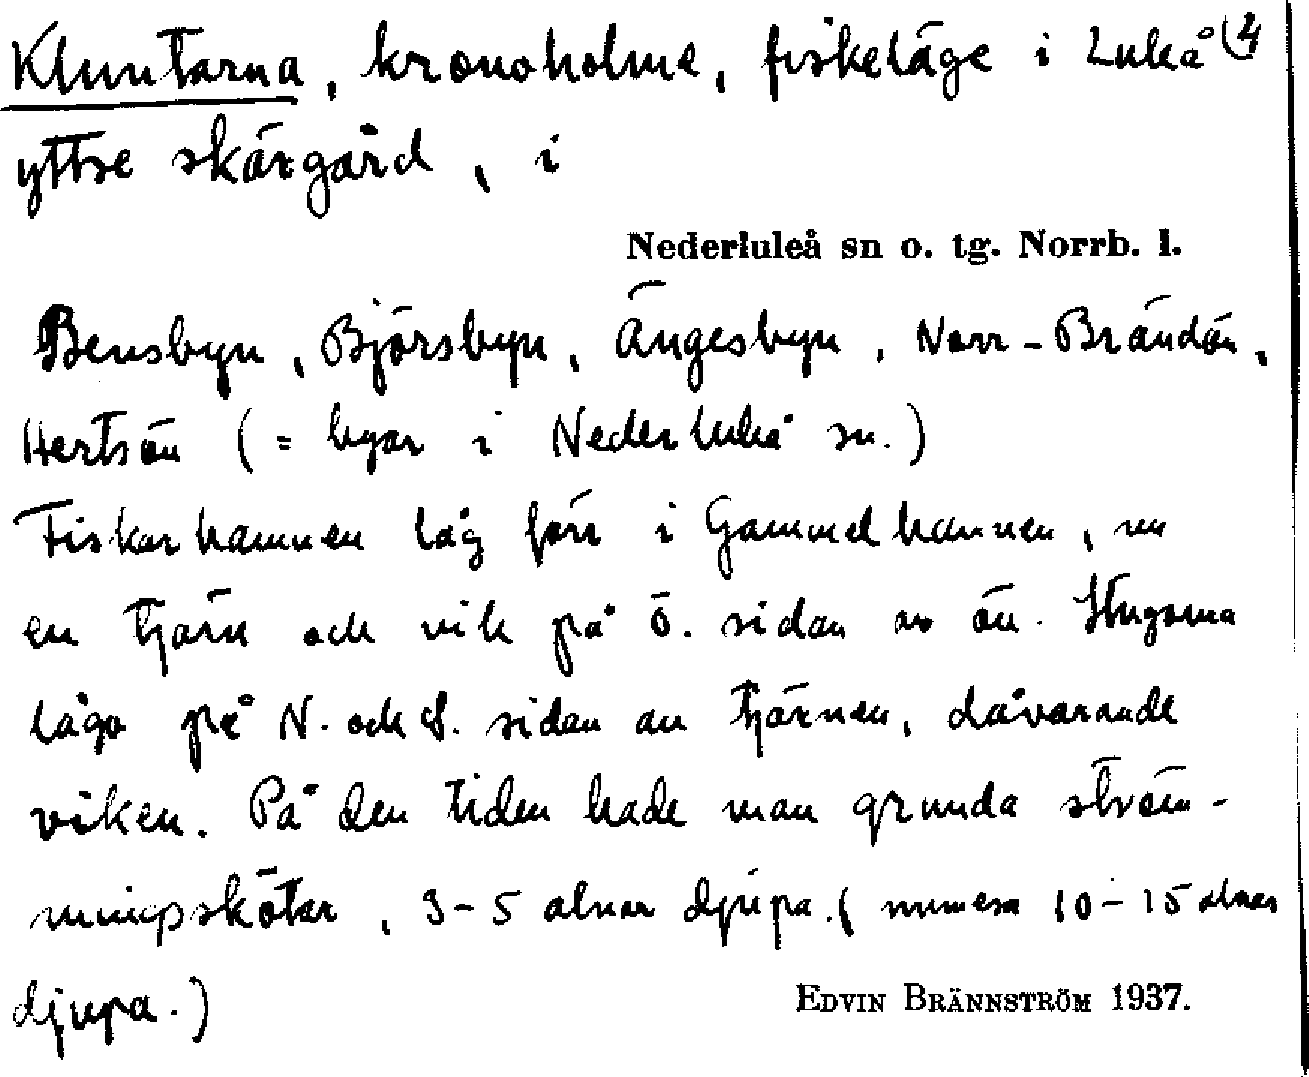 Kluntarna, kronoholme, fiskeläge i Luleå (4
yttre skärgård, i
Nederluleå sn o. tg. Norrb. l.
Bensbyn, Björsbyn, Ängesbyn, Norr-Brändön,
Hertsön (= byar i Nederluleå sn.)
Fiskarhamnen låg förr i Gammelhamnen, nu
en tjärn och vik på ö. sidan av ön. Stugorna
lågo på N. och S. sidan av tjärnen, dåvarande
viken. På den tiden hade man grunda ström-
mingsskötar, 3-5 alnar djupa. (numera 10-15 alnar
djupa.)
EDVIN BRÄNNSTRÖM 1937.